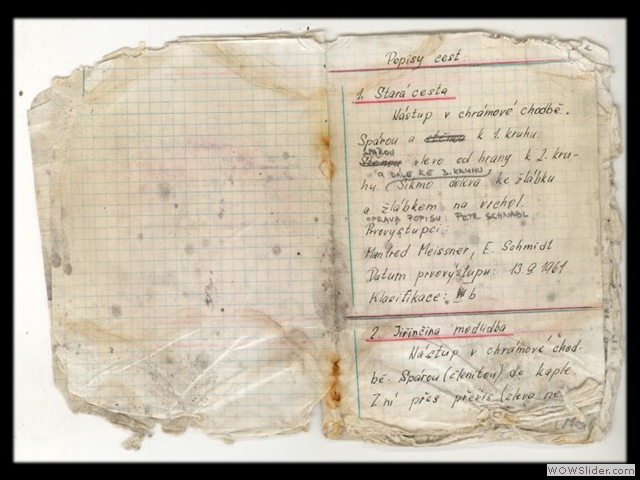 Popisy cest.
1. Stará cesta
Nástup v chrámové chodbě.
Spárou a k 1. kruhu.
SPÁROU
Stěnou vlevo od hrany k 2. kru-
A DÁLE KE 3. KRUHU
hu. Šikmo doleva ke žlábku
a žlábkem na vrchol.
OPRAVA POPISU: PETR SCHNABL
Prvovýstupci:
Manfred Meissner, E. Schmidt
Datum prvovýstupu: 13.9 1961
Klasifikace: b
2. Jiřinčina modlidba
Nástup v chrámové chod-
bě. Spárou (členitou) do kaple.
Z ní přes převis (zleva ne
WOWSlider.com